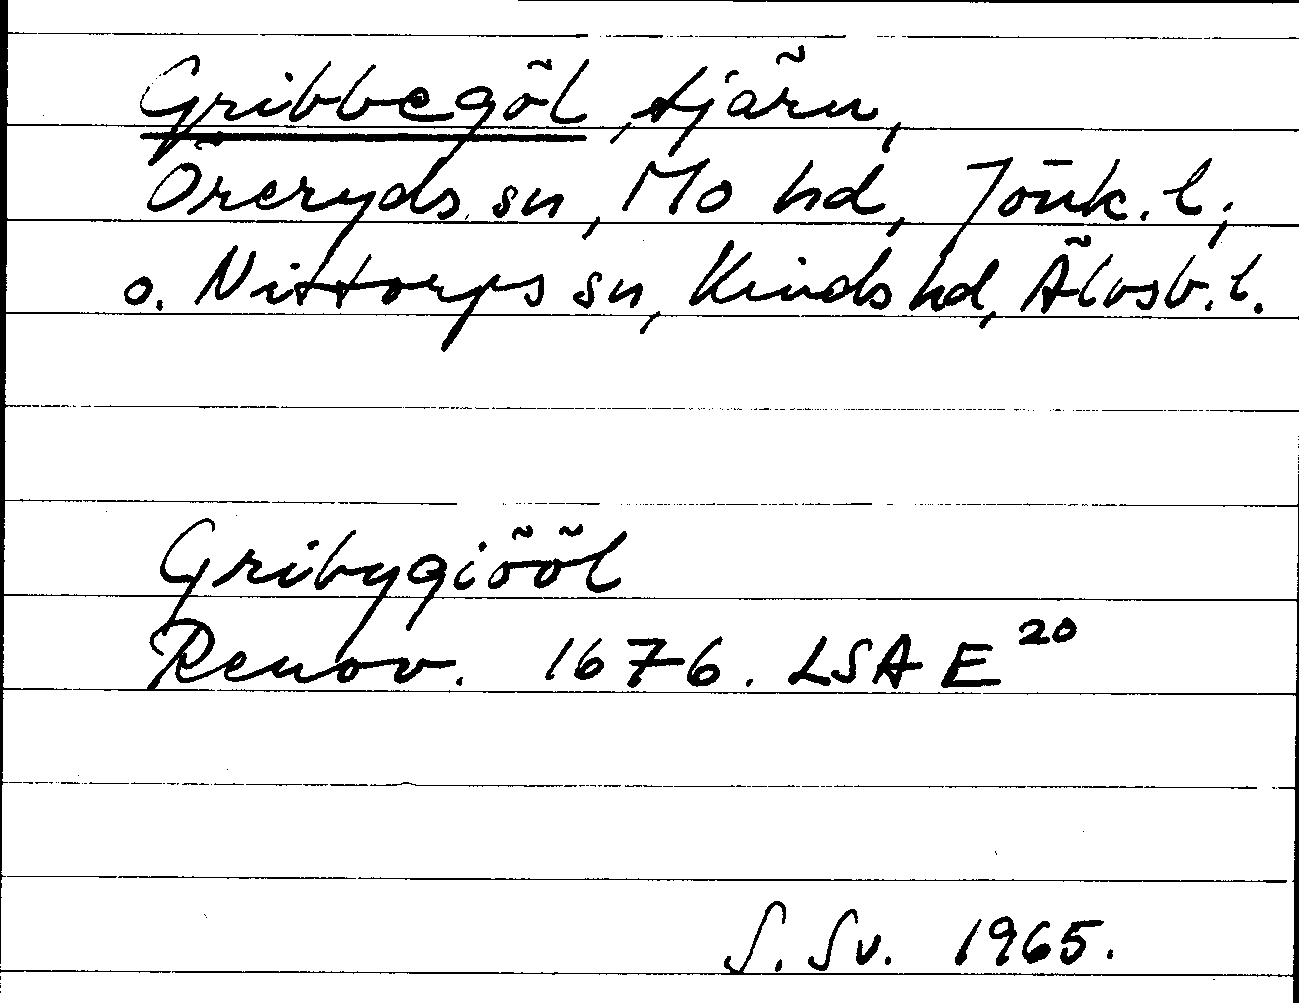 Gribbegöl, tjärn,
Öreryds sn, Mo hd, Jönk. l;
o. Nittorps sn, Kinds hd, Älvsb. l.
Gribygiööl
Renov. 1676. LSA E 20
S. Sv. 1965.